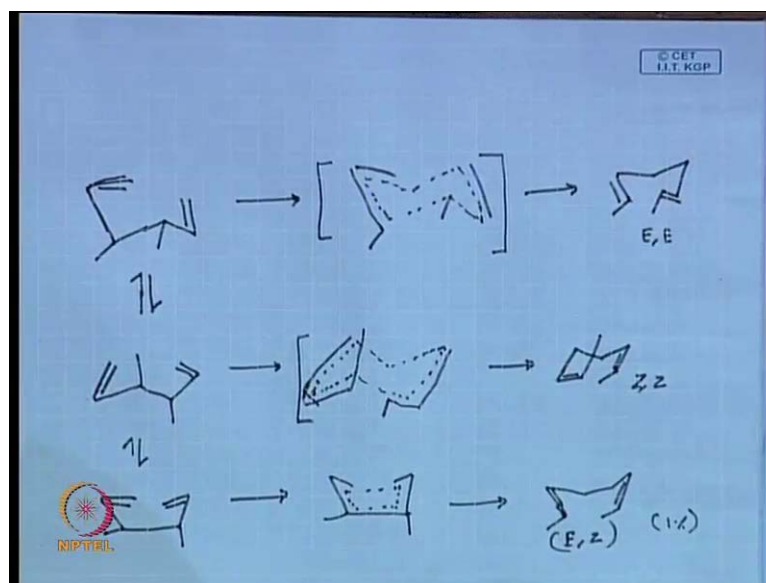 © CET
I.I.T. KGP
E, E
Z, Z
(E, Z)
(1%)
NPTEL